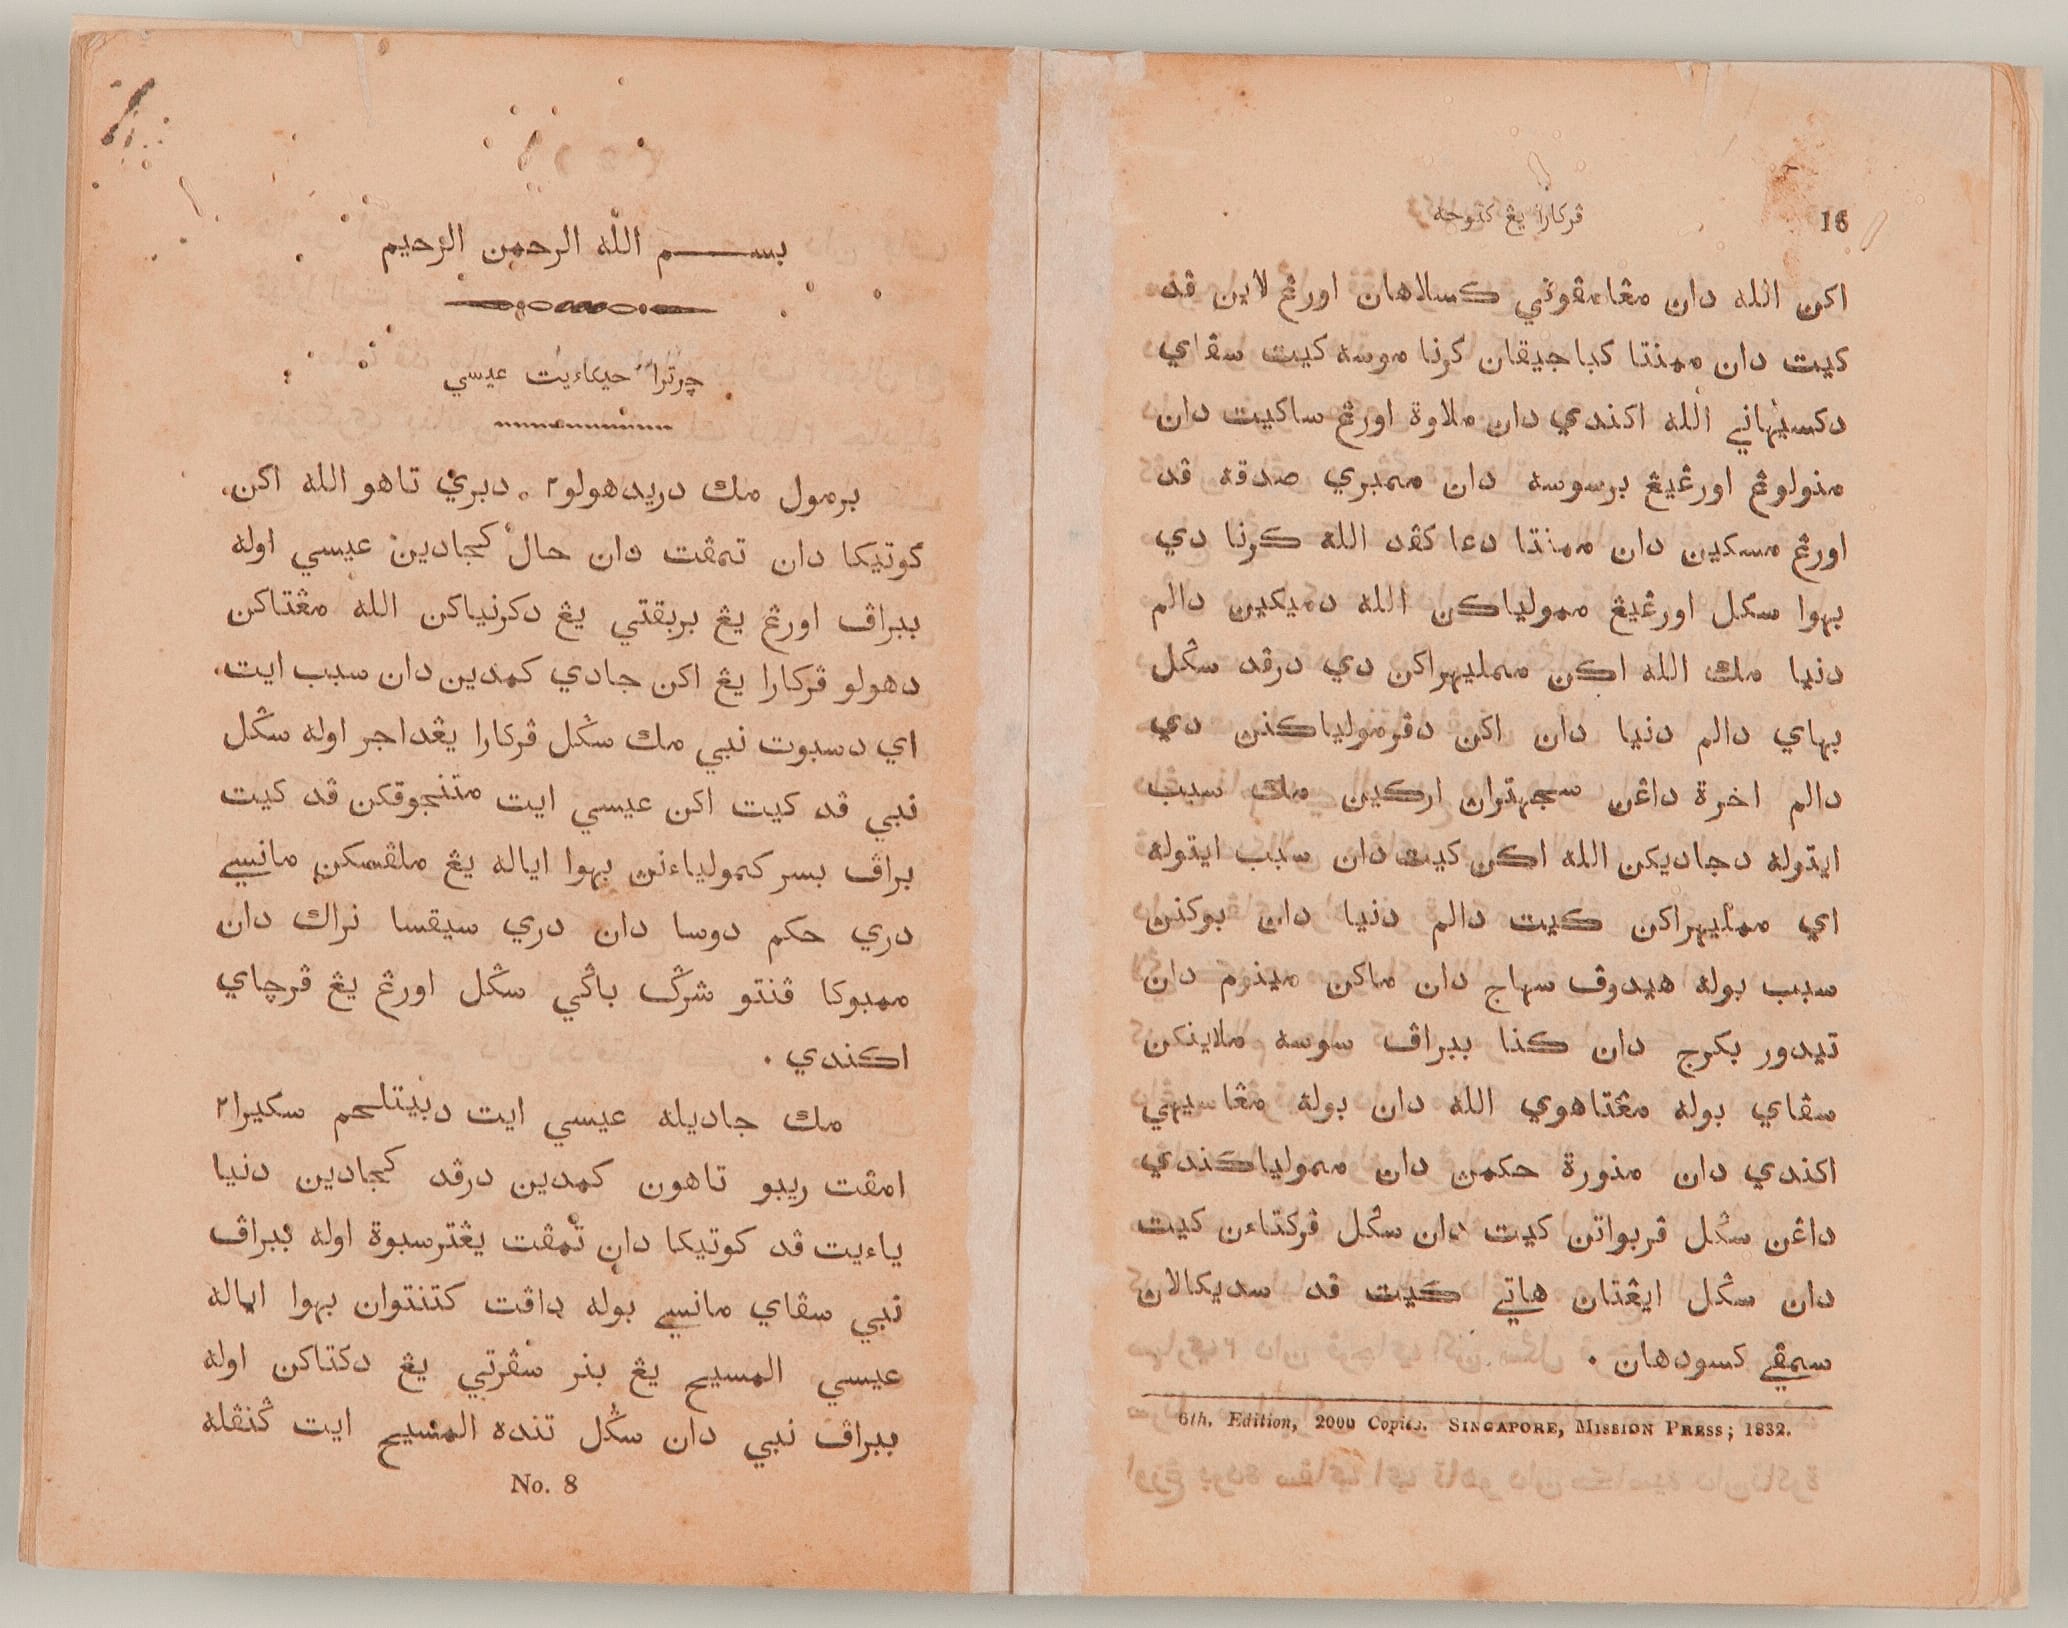 16
ڤركارا يڠ كتوجه
اكن الله دان مڠامڤوني كسلاهان اورڠ لاين ڤد
كيت دان ممنتا كباجيقان كرنا موسه كيت سڤاي
دكسيهاني الله اكندي دان ملاوة اورڠ ساكيت دان
منولوڠ اورڠيڠ برسوسه دان ممبري صدقه ڤد
اورڠ مسكين دان ممنتا دعا كڤد الله كرنا دي
بهوا سكل اورڠيڠ ممولياكن الله دميكين دالم
دنيا مك الله اكن ممليهراكن دي درڤد سڬل
بهاي دالم دنيا دان اكن دڤرمولياكنن دي
دالم اخرة داڠن سجهتران اركين مك سبب
ايتوله دجاديكن الله اكن كيت دان سبب ايتوله
اي ممليهراكن كيت دالم دنيا دان بوكنن
سبب بوله هيدوڤ سهاج دان ماكن مينم دان
تيدور بكرج دان كنا ببراڤ سوسه ملاينكن
سڤاي بوله مڠتاهوي الله دان بوله مڠاسيهي
اكندي دان منورة حكمن دان ممولياكندي
داڠن سڬل ڤربواتن كيت دان سڬل ڤركتاءن كيت
دان سڬل ايڠتان هاتي كيت ڤد سديكالان
سمڤي كسودهان .
6th. Edition, 2000 Copies. SINGAPORE, MISSION PRESS; 1832.
بسم الله الرحمن الرحيم
چرترا حيكاءيت عيسي
برمول مك دريدهولو٢ دبري تاهو الله اكن
كوتيكا دان تمڤت دان حال كجادين عيسي اوله
ببراڤ اورڠ يڠ بربقتي يڠ دكرنياكن الله مڠتاكن
دهولو ڤركارا يڠ اكن جادي كمدين دان سبب ايت
اي دسبوت نبي مك سڬل ڤركارا يڠداجر اوله سڬل
نبي ڤد كيت اكن عيسي ايت متنجوقكن ڤد كيت
براڤ بسر كمولياءنن بهوا اياله يڠ ملڤسكن مانسي
دري حكم دوسا دان دري سيقسا نراك دان
ممبوكا ڤنتو شرڬ باڬي سڬل اورڠ يڠ ڤرچاي
اكندي .
مك جاديله عيسي ايت دبيتلحم سكيرا٢
امڤت ريبو تاهون كمدين درڤد كجادين دنيا
ياءيت ڤد كوتيكا دان تمڤت يڠترسبوة اوله ببراڤ
نبي سڤاي مانسي بوله داڤت كتنتوان بهوا اياله
عيسي المسيح يڠ بنر سڤرتي يڠ دكتاكن اوله
ببراڤ نبي دان سڬل تنده المسيح ايت ڬنڤله
No. 8